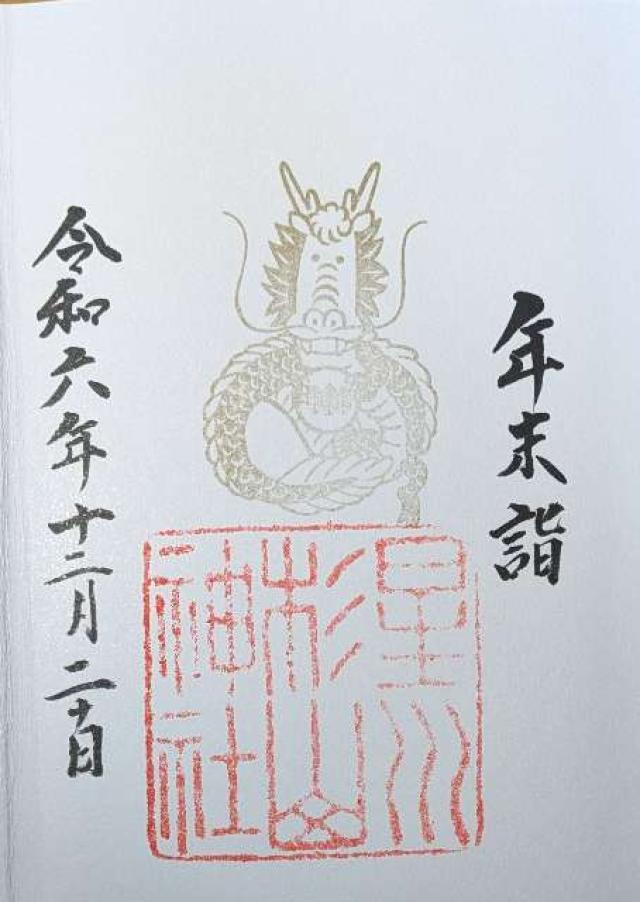 年末詣
星川
杉山
神社
令和六年十二月二十日